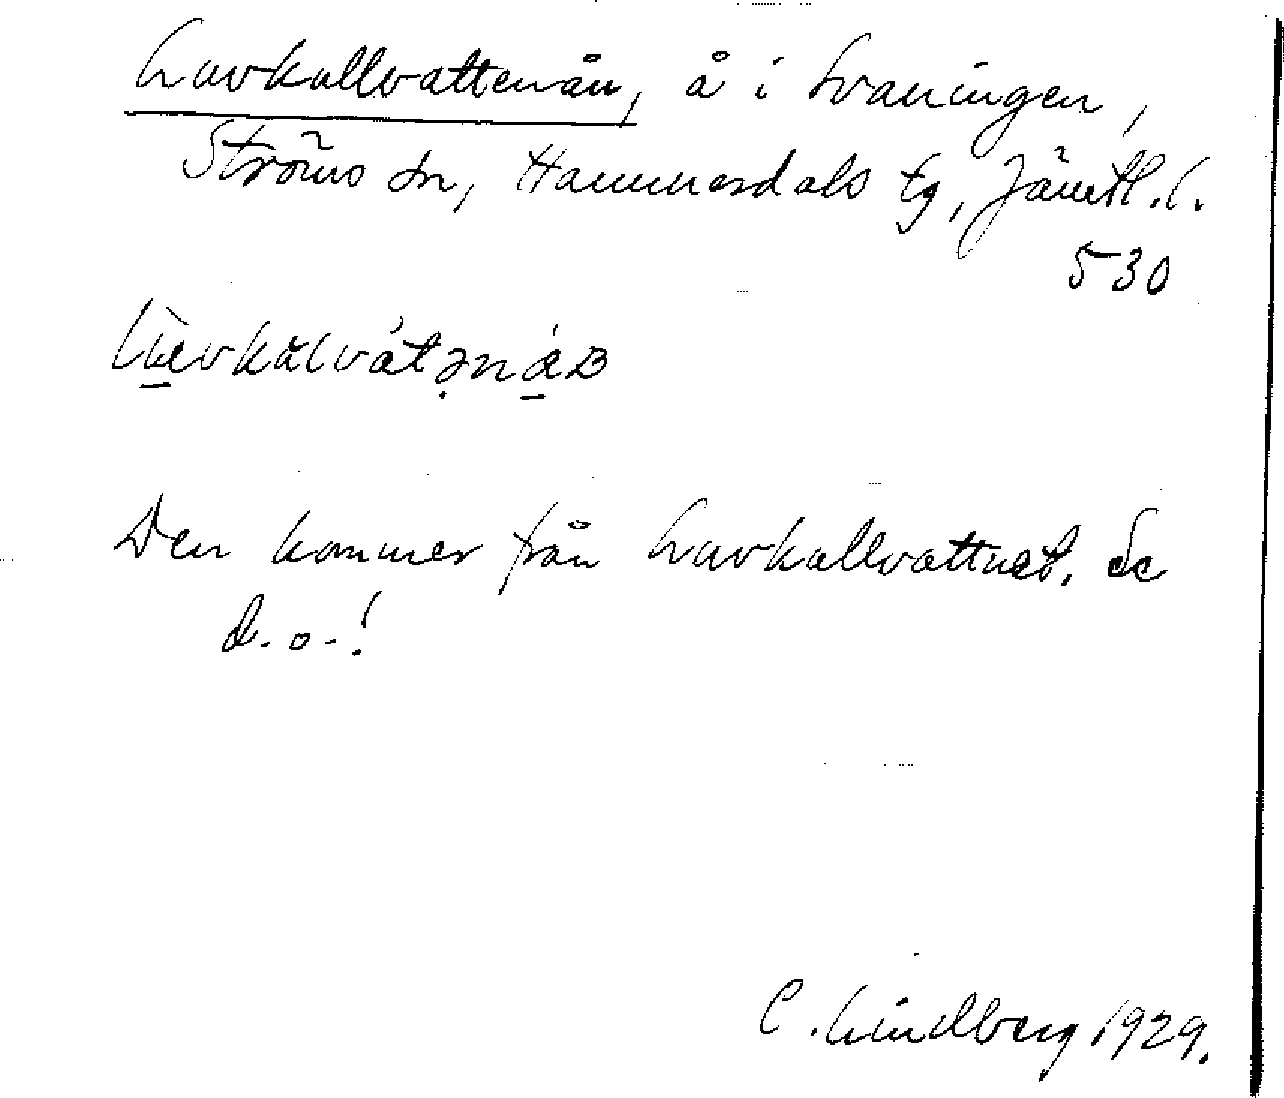 Lavkallvattenån, å i Svaningen,
Ströms sn, Hammerdals tg, Jämtl. l.
530
Den kommer från Lavkallvattnet. Se
d. o.!
C. Lindberg 1929.